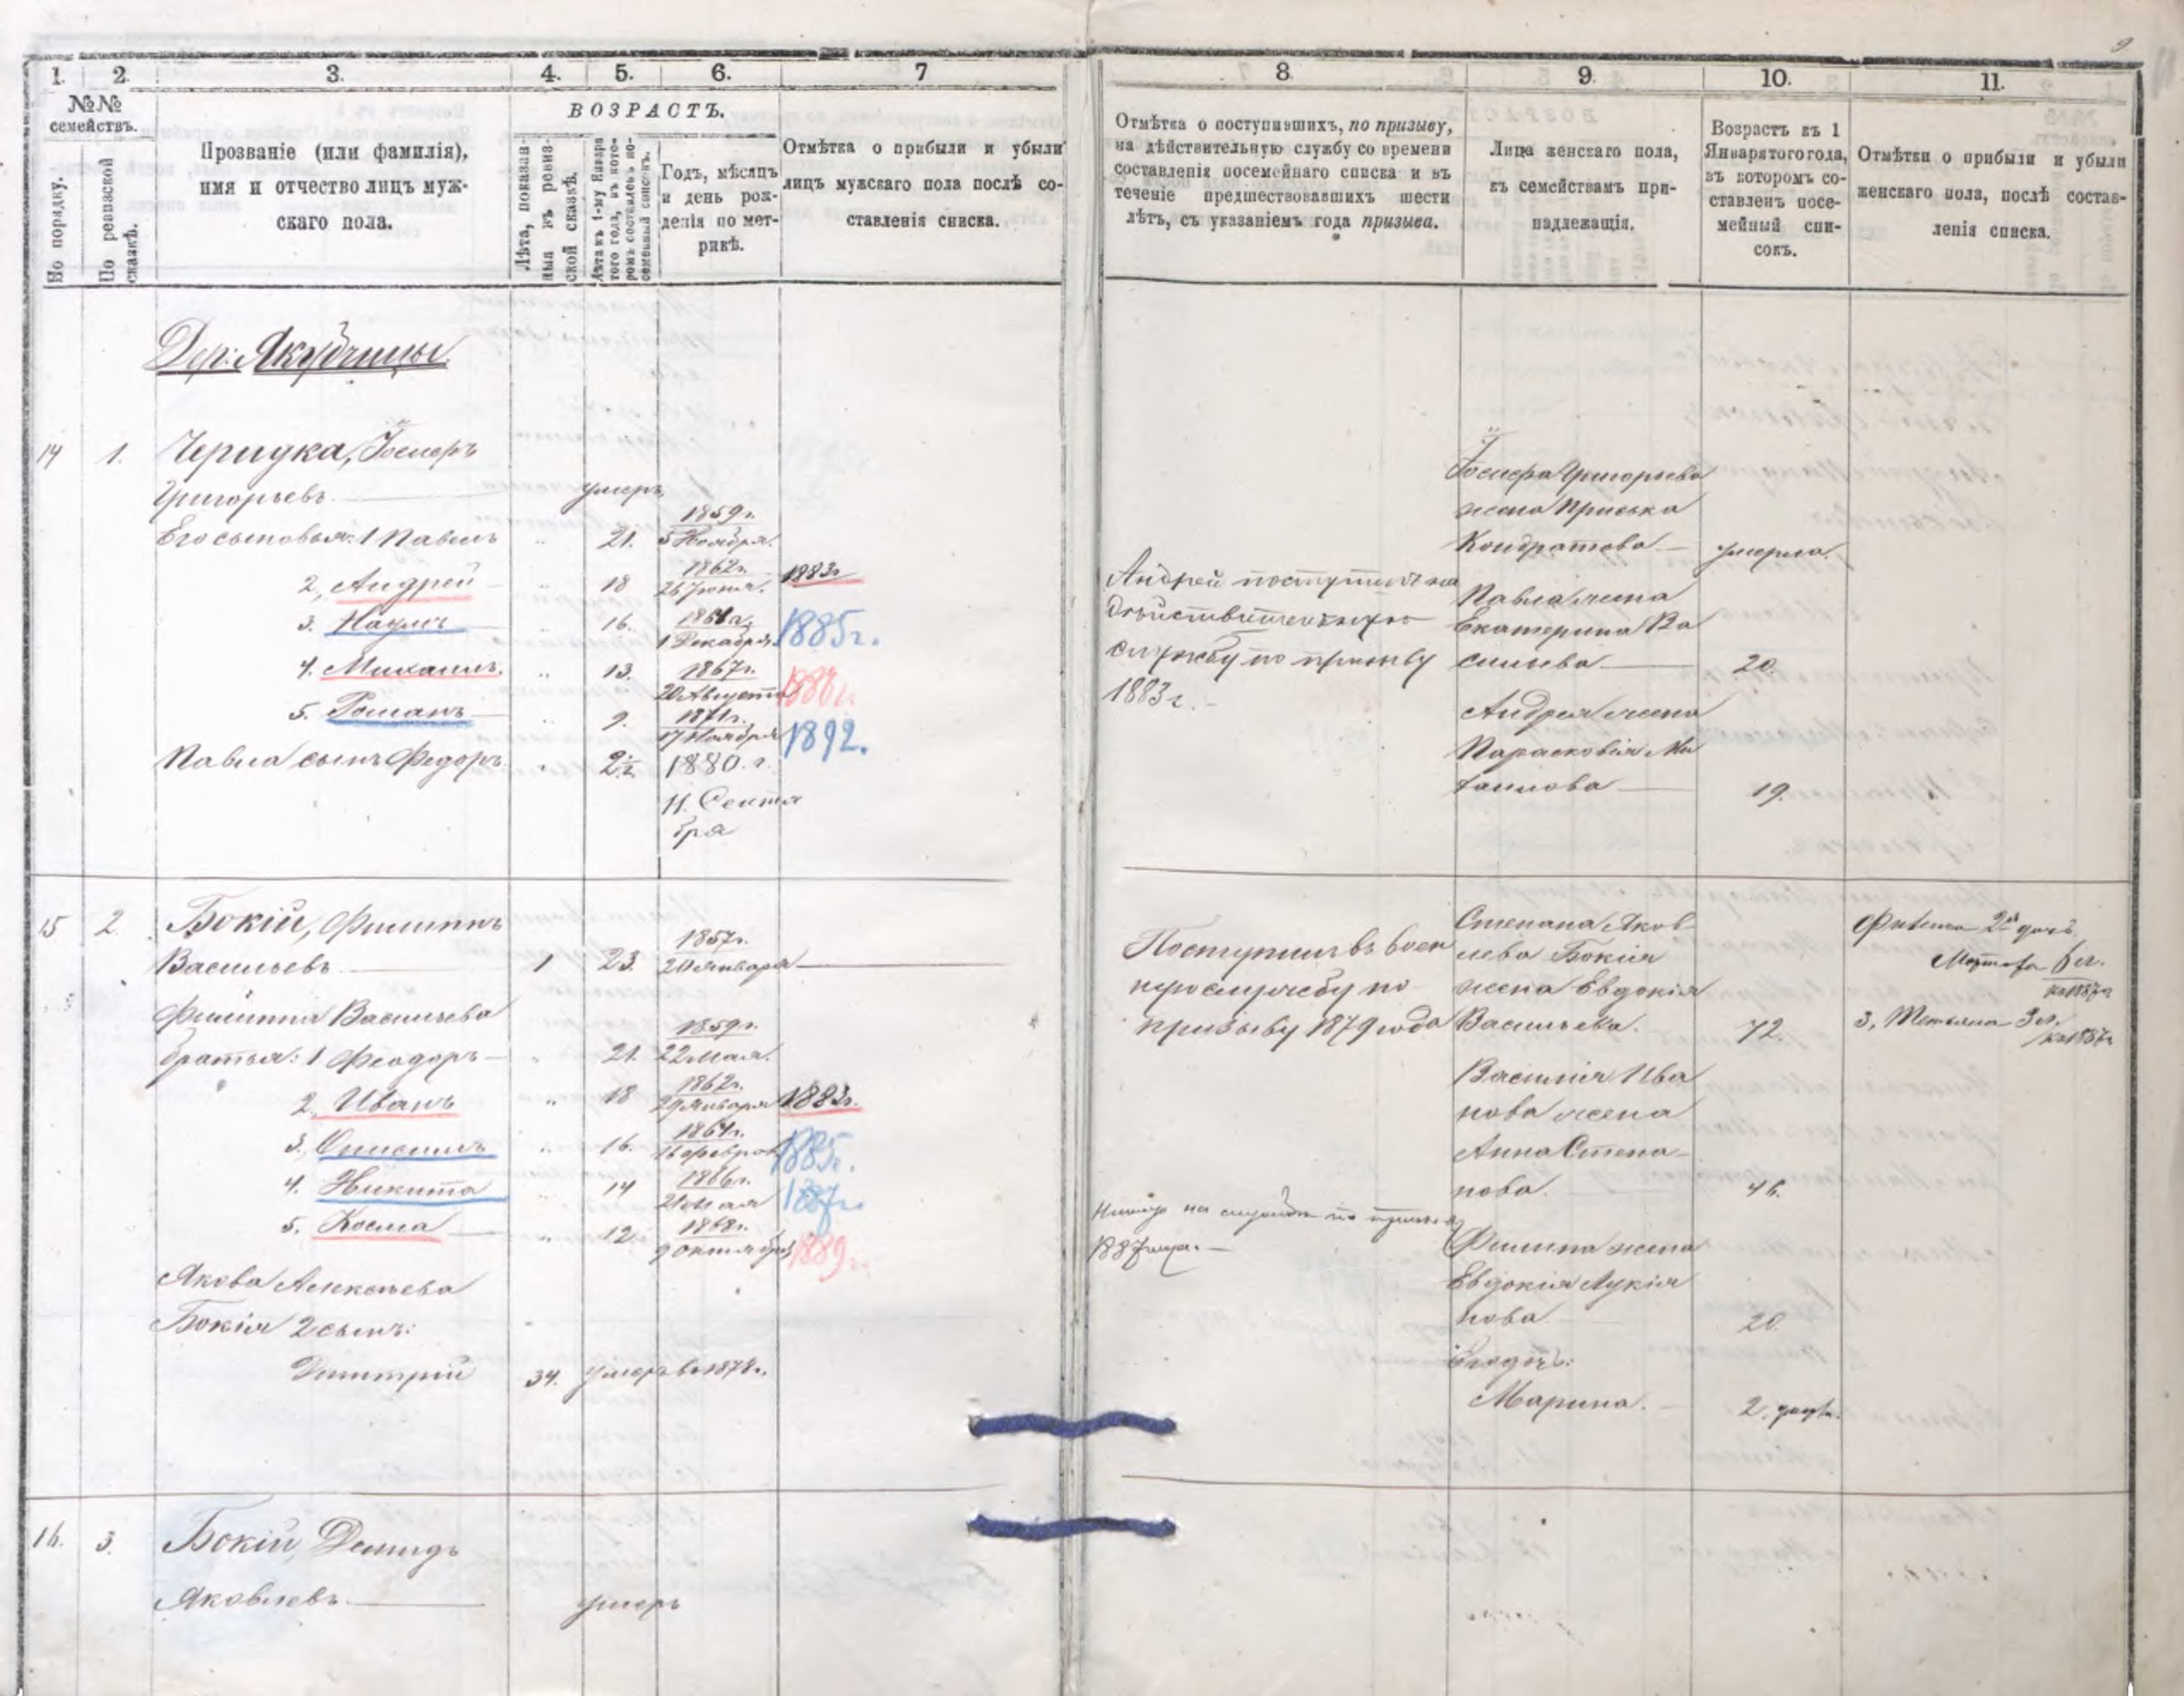 9
1. 2. 3. 4. 5. 6. 7
№№ семействъ.
По порядку.
По ревизской сказкѣ.
Прозваніе (или фамилія),
имя и отчество лицъ муж-
скаго пола.
ВОЗРАСТЪ.
Лѣта, показан-
ныя въ ревиз-
ской сказкѣ.
Лѣта къ 1-му Января
того года, въ кото-
ромъ составленъ по-
семейный списокъ.
Годъ, мѣсяцъ
и день рож-
денія по мет-
рикѣ.
Отмѣтка о прибыли и убыли
лицъ мужскаго пола послѣ со-
ставленія списка.
Дер: Якубчицы.
14 1. Черидка, Іосифъ
Григорьевъ умеръ
Его сыновья: 1 Павелъ " 21. 1859г. 5 Ноября.
2, Андрей " 18 1862г. 1883г
3. Наумъ " 16. 1864г. 1 Декабря. 1885г.
4. Михаилъ. " 13. 1867г. 20 Августа
5. Романъ " 9. 1871г. 17 Ноября 1892.
Павла сынъ Федоръ " 1880.г.
11. Сентя
бря
15 2. Бокій, Филиппъ
Васильевъ 1 23. 1857г. 20 Января
Филиппа Васильева
братья: 1 Феодоръ " 21. 1859г. 22 Мая.
2, Иванъ " 18 1862г. 29 Января 1883г.
3, Онисимъ " 16. 1864г. 16 Феврал 1885г.
4. Никита " 14 1866г. Мая 1887г.
5. Косма " 12 1868г. 9 Октября 1889г.
Якова Алексѣева
Бокія 2 сынъ:
Дмитрій 34. умеръ въ 1878г.
16. 3. Бокій, Демидъ
Яковлевъ умеръ
8 9. 10. 11.
Отмѣтка о поступившихъ, по призыву,
на дѣйствительную службу со времени
составленія посемейнаго списка и въ
теченіе предшествовавшихъ шести
лѣтъ, съ указаніемъ года призыва.
Лица женскаго пола,
къ семействамъ при-
надлежащія.
Возрастъ къ 1
Января того года,
въ которомъ со-
ставленъ посе-
мейный спи-
сокъ.
Отмѣтки о прибыли и убыли
женскаго пола, послѣ состав-
ленія списка.
Іосифа Григорьева
жена Приська
Кондратова умерла.
Андрей поступилъ на
дѣйствительную
службу по призыву
1883г.
Павла жена
Екатерина Ва
сильева 20.
Андрея жена
Парасковія Ми
хайлова 19.
Поступилъ въ воен
ную службу по
призыву 1879 года
Степана Яков-
лева Бокія
жена Евдокія
Васильева. 72.
Василія Ива
нова жена
Анна Степа-
нова. 46.
на службу по призыву
1887 года.
Филипа жена
Евдокія Лукія
нова 20.
Ихъ дочь:
Марина. 2.
Филипа 2я дочь
Марфа 6 л.
на 1887г
3, Татьяна 3 л.
на 1887г